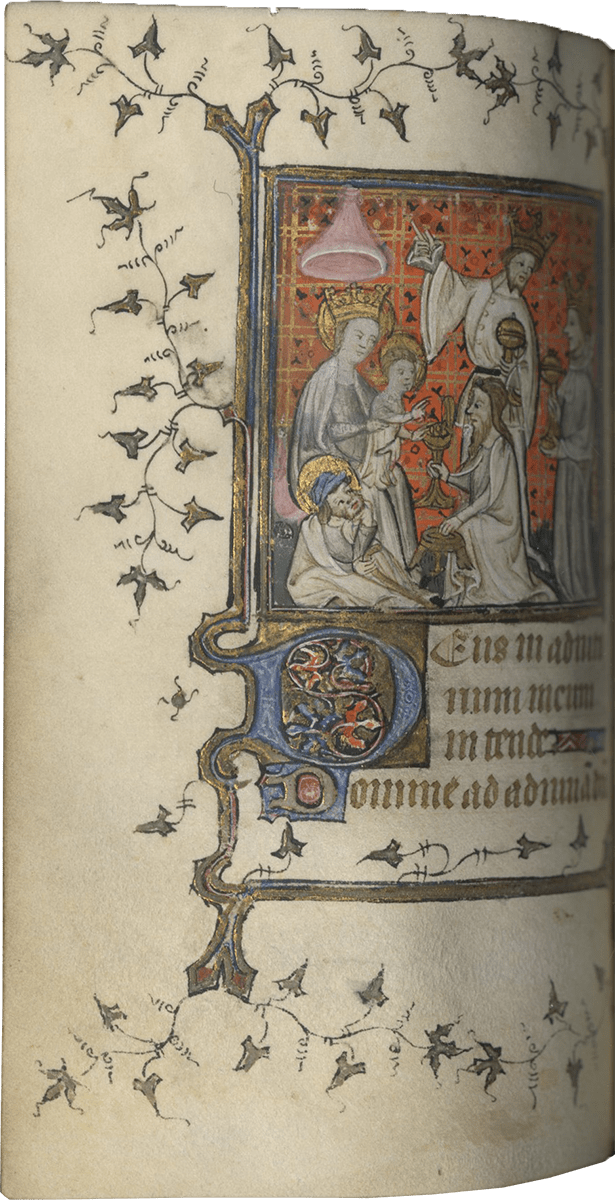 Deus in adiuto
rium meum
in tende
Domine ad adiuuādū